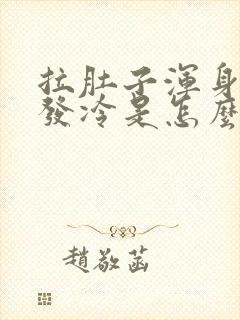 拉肚子渾身
發冷是怎麼
趙敬菡